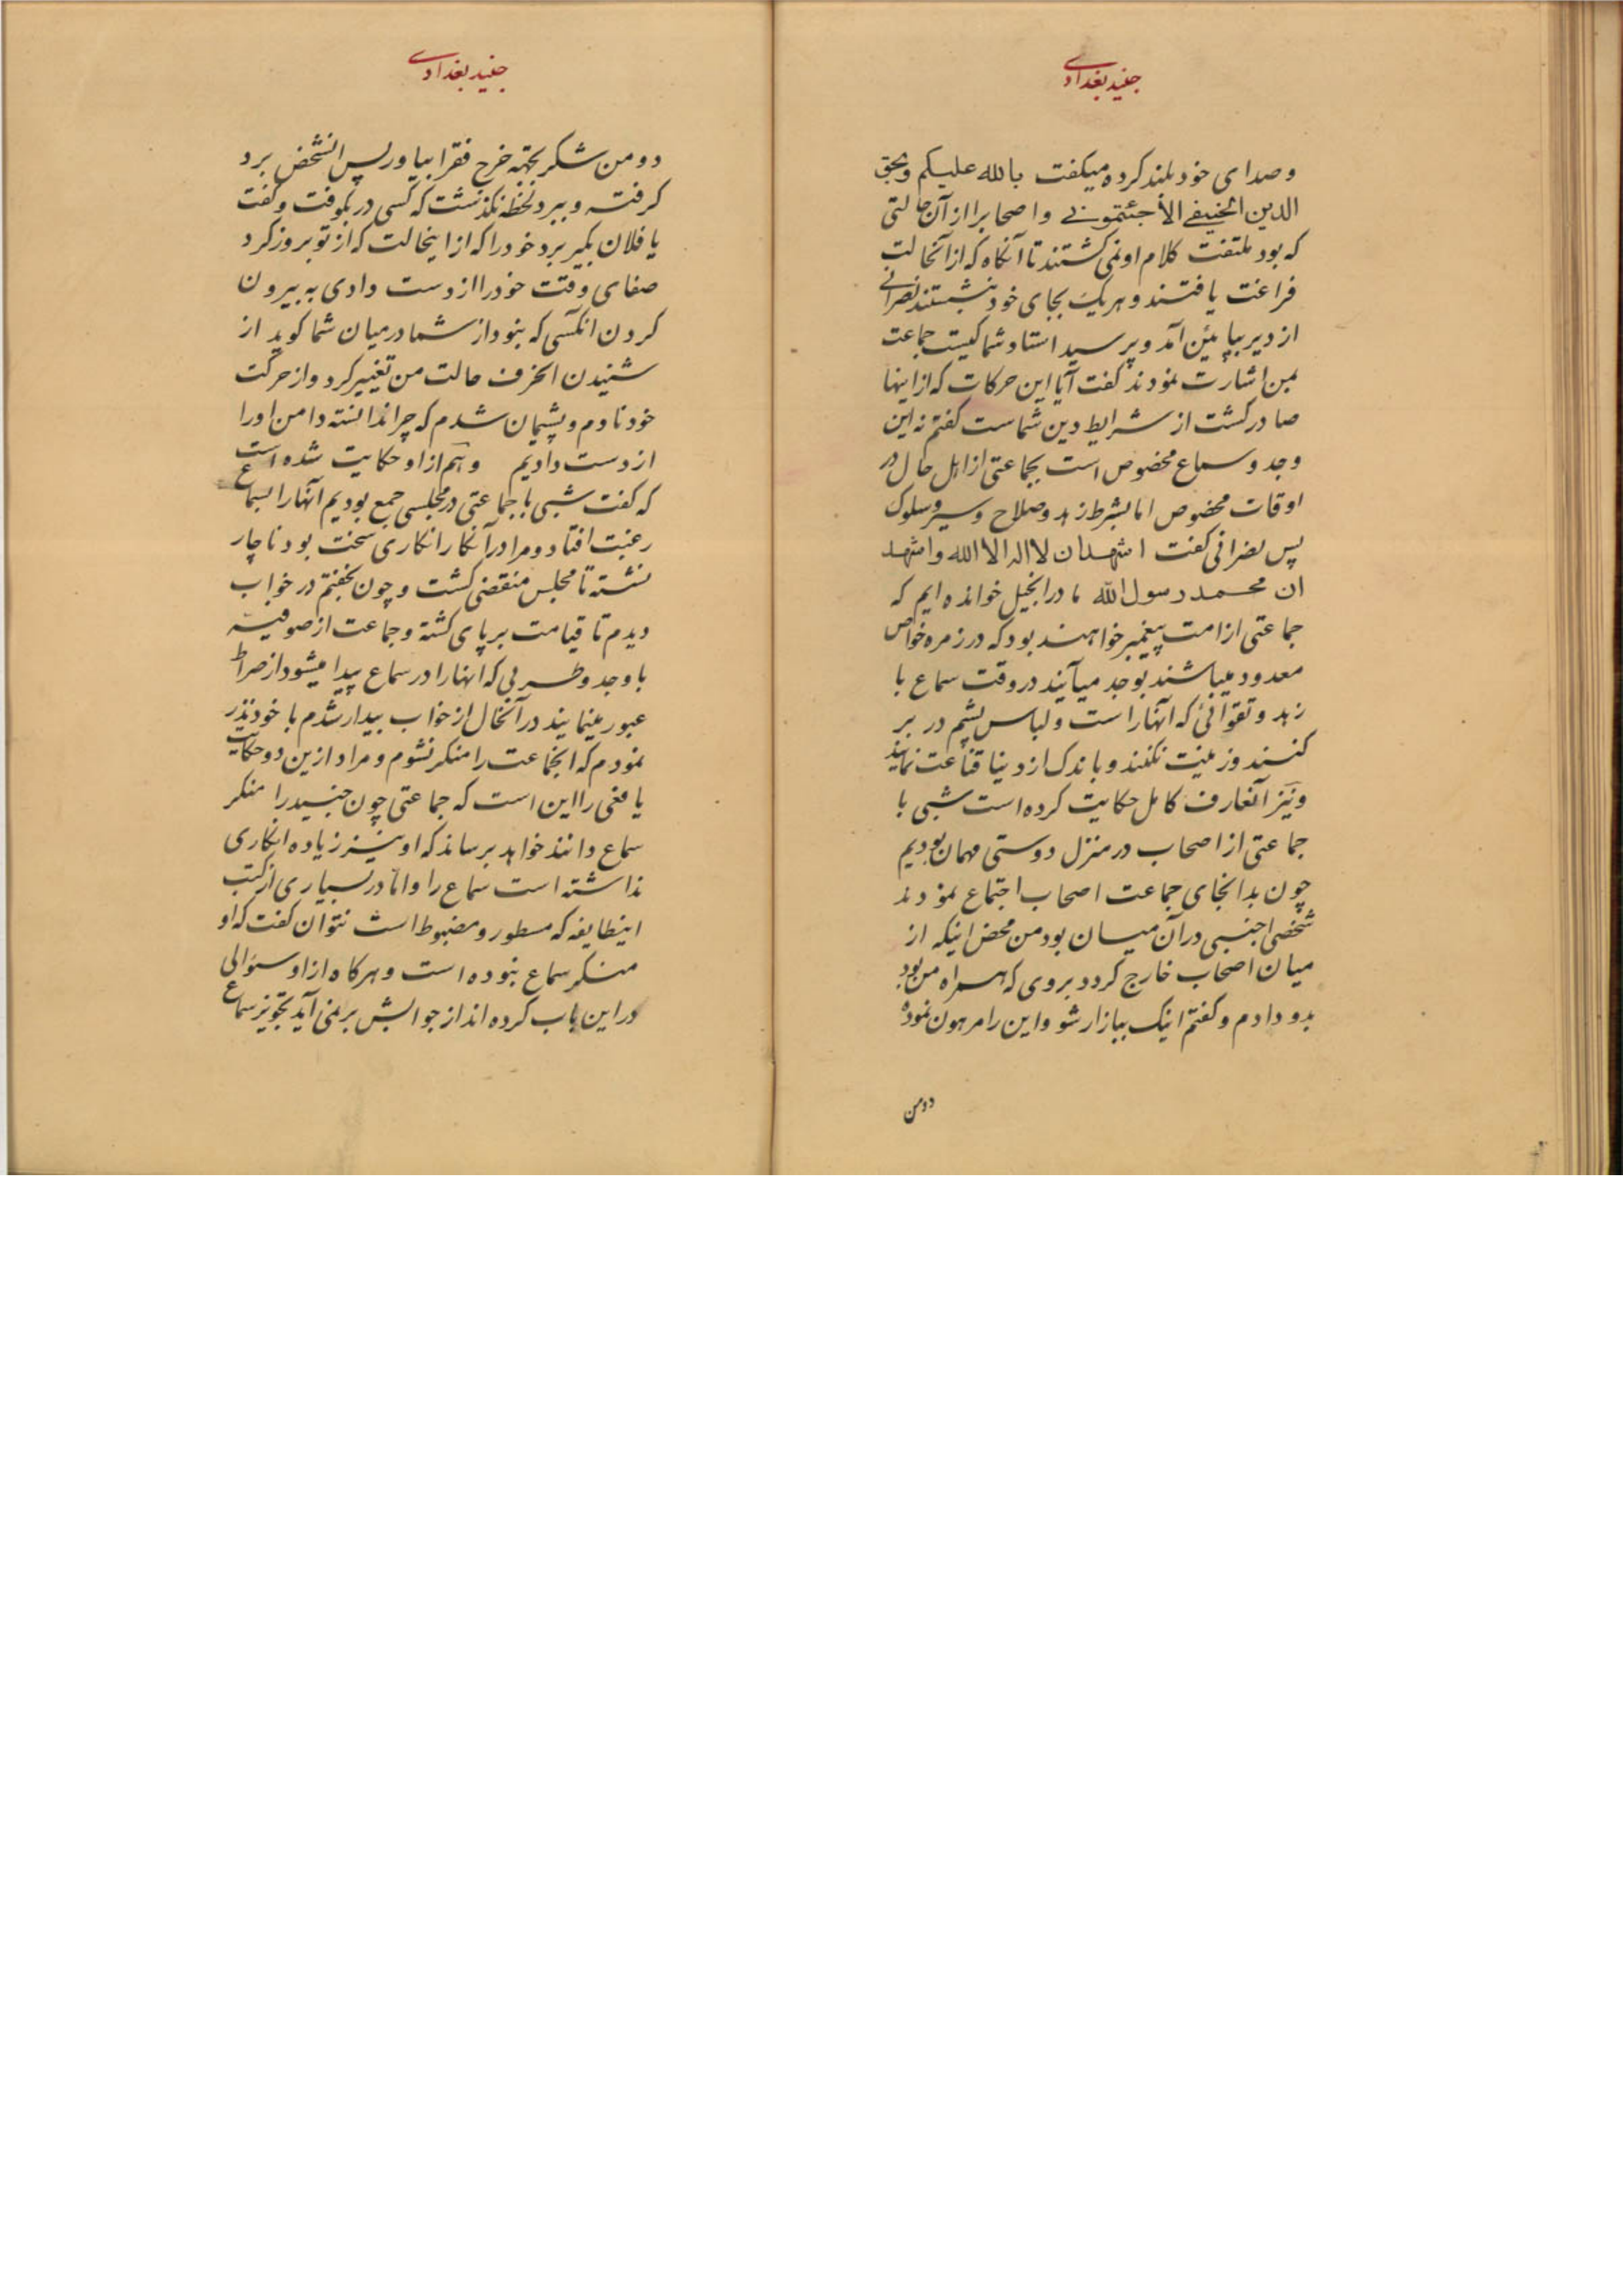 جنید بغدادی
و صدای خود بلند کرده میکفت بالله علیکم و بحق
الدین الحنیفے الا جئتمونے و اصحابرا از آن حالتی
که بود ملتفت کلام او نمی کشتند تا آنکاه که از آنحالت
فراغت یافتند و هریک بجای خود بنشستند نصرانے
از دیر بپایئن آمد و پرسید استاد شما کیست جماعت
بمن اشارت نمودند کفت آیا این حرکات که از اینها
صادر کشت از شرایط دین شماست کفتم نه این
وجد و سماع مخصوص است بجماعتی از اهل حال در
اوقات مخصوص اما بشرط زهد و صلاح و سیر و سلوک
پس نصرانی کفت اشهد ان لا اله الا الله و اشهد
ان محمد رسول الله ما در انجیل خوانده ایم که
جماعتی از امت پیغمبر خواهند بود که در زمره خواص
معدود میباشند بوجد میآیند در وقت سماع با
زهد و تقوائی که آنهارا است و لباس پشم در بر
کنند و زینت نکنند و باندک از دنیا قناعت نمایند
و نیز آنعارف کامل حکایت کرده است شبی با
جماعتی از اصحاب در منزل دوستی مهمان بودیم
چون بدانجای جماعت اصحاب اجتماع نمودند
شخصی اجنبی در آن میان بود من محض اینکه از
میان اصحاب خارج کردد بروی که همراه من بود
بدو دادم و کفتم اینک ببازار شو و این را مرهون نموده
دومن
جنید بغدادی
دومن شکر بجهته خرج فقرا بیاور پس انشخص برد
کرفته و ببرد لحظه نکذشت که کسی در بکوفت و کفت
یا فلان بکیر برد خودرا که از اینحالت که از تو بروز کرد
صفای وقتت خودرا از دست دادی به بیرون
کردن انکسی که بنود از شما در میان شما کوید از
شنیدن انحرف حالت من تغییر کرد و از حرکت
خود نادم و پشیمان شدم که چرا ندانسته دامن اورا
از دست دادیم و هم از او حکایت شده است
که کفت شبی با جماعتی در مجلسی جمع بودیم آنهارا بسماع
رغبت افتاد و مرا در آنکار انکاری سخت بود ناچار
نشسته تا مجلس منقضی کشت و چون بخفتم در خواب
دیدم تا قیامت بر پای کشته و جماعت از صوفیه
با وجد و طربی که انهارا در سماع پیدا میشود از صراط
عبور مینمایند در آنحال از خواب بیدار شدم با خود نذر
نمودم که انجماعت را منکر نشوم و مراد ازین دو حکایت
یافعی را این است که جماعتی چون جنید را منکر
سماع دانند خواهد برساند که او نیز زیاده انکاری
نداشته است سماع را و اما در بسیاری از کتب
اینطایفه که مسطور و مضبوط است نتوان کفت که او
منکر سماع بنوده است و هرکاه از او سئوالی
در این باب کرده اند از جوابش بر می آید تجویز سماع